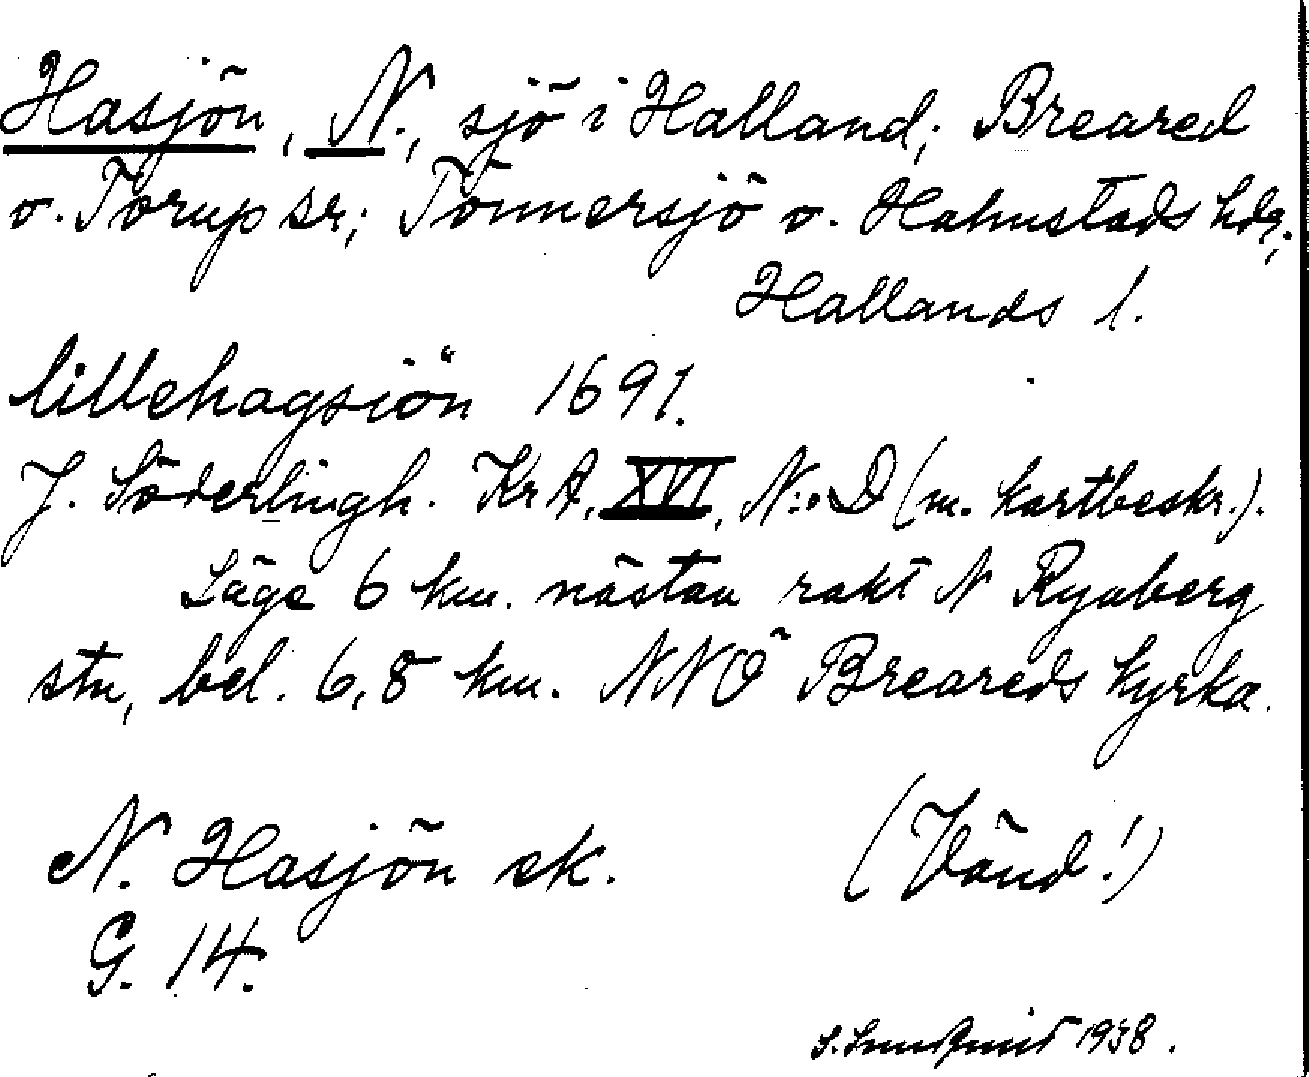 Hasjön, N., sjö i Halland; Breared
o. Torup sr; Tönnersjö o. Halmstads hdr;
Hallands l.
lillehagsiön 1691.
J. Söderlingh. KrA, XVI, N:o D (m. kartbeskr.).
Läge 6 km. nästan rakt N Ryaberg
stn, bel. 6,8 km. NNÖ Breareds kyrka.
N. Hasjön ek.
G. 14.
(Vänd!)
1938.